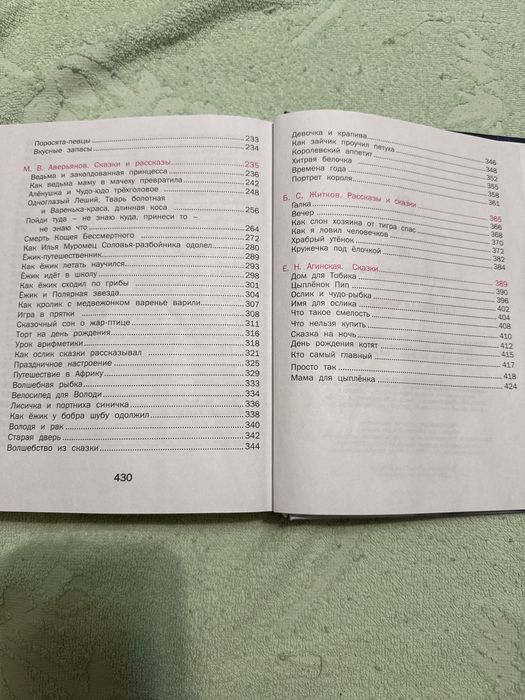 Поросята-певцы ... 233
Вкусные запасы ... 234
М. В. Аверьянов. Сказки и рассказы ... 235
Ведьма и заколдованная принцесса ... 236
Как ведьма маму в мачеху превратила ... 242
Алёнушка и Чудо-юдо трёхголовое ... 248
Одноглазый Леший, Тварь болотная
и Варенька-краса, длинная коса ... 256
Пойди туда – не знаю куда, принеси то –
не знаю что ... 264
Смерть Кощея Бессмертного ... 272
Как Илья Муромец Соловья-разбойника одолел ... 280
Ёжик-путешественник ... 289
Как ёжик летать научился ... 293
Ёжик идёт в школу ... 298
Как ёжик сходил по грибы ... 301
Ёжик и Полярная звезда ... 304
Как кролик с медвежонком варенье варили ... 307
Игра в прятки ... 308
Сказочный сон о жар-птице ... 311
Торт на день рождения ... 316
Урок арифметики ... 318
Как ослик сказки рассказывал ... 321
Праздничное настроение ... 325
Путешествие в Африку ... 329
Волшебная рыбка ... 333
Велосипед для Володи ... 334
Лисичка и портниха синичка ... 336
Как ёжик у бобра шубу одолжил ... 338
Володя и рак ... 340
Старая дверь ... 342
Волшебство из сказки ... 344
430
Девочка и крапива ... 346
Как зайчик проучил петуха ... 348
Королевский аппетит ... 352
Хитрая белочка ... 355
Времена года ... 358
Портрет короля ... 361
Б. С. Житков. Рассказы и сказки ... 365
Галка ... 366
Вечер ... 368
Как слон хозяина от тигра спас ... 370
Как я ловил человечков ... 372
Храбрый утёнок ... 382
Кружечка под ёлочкой ... 384
Е. Н. Агинская. Сказки ... 389
Дом для Тобика ... 390
Цыплёнок Пип ... 396
Ослик и чудо-рыбка ... 402
Имя для ослика ... 404
Что такое смелость ... 408
Что нельзя купить ... 410
Сказка на ночь ... 412
День рождения котят ... 415
Кто самый главный ... 417
Просто так ... 418
Мама для цыплёнка ... 424